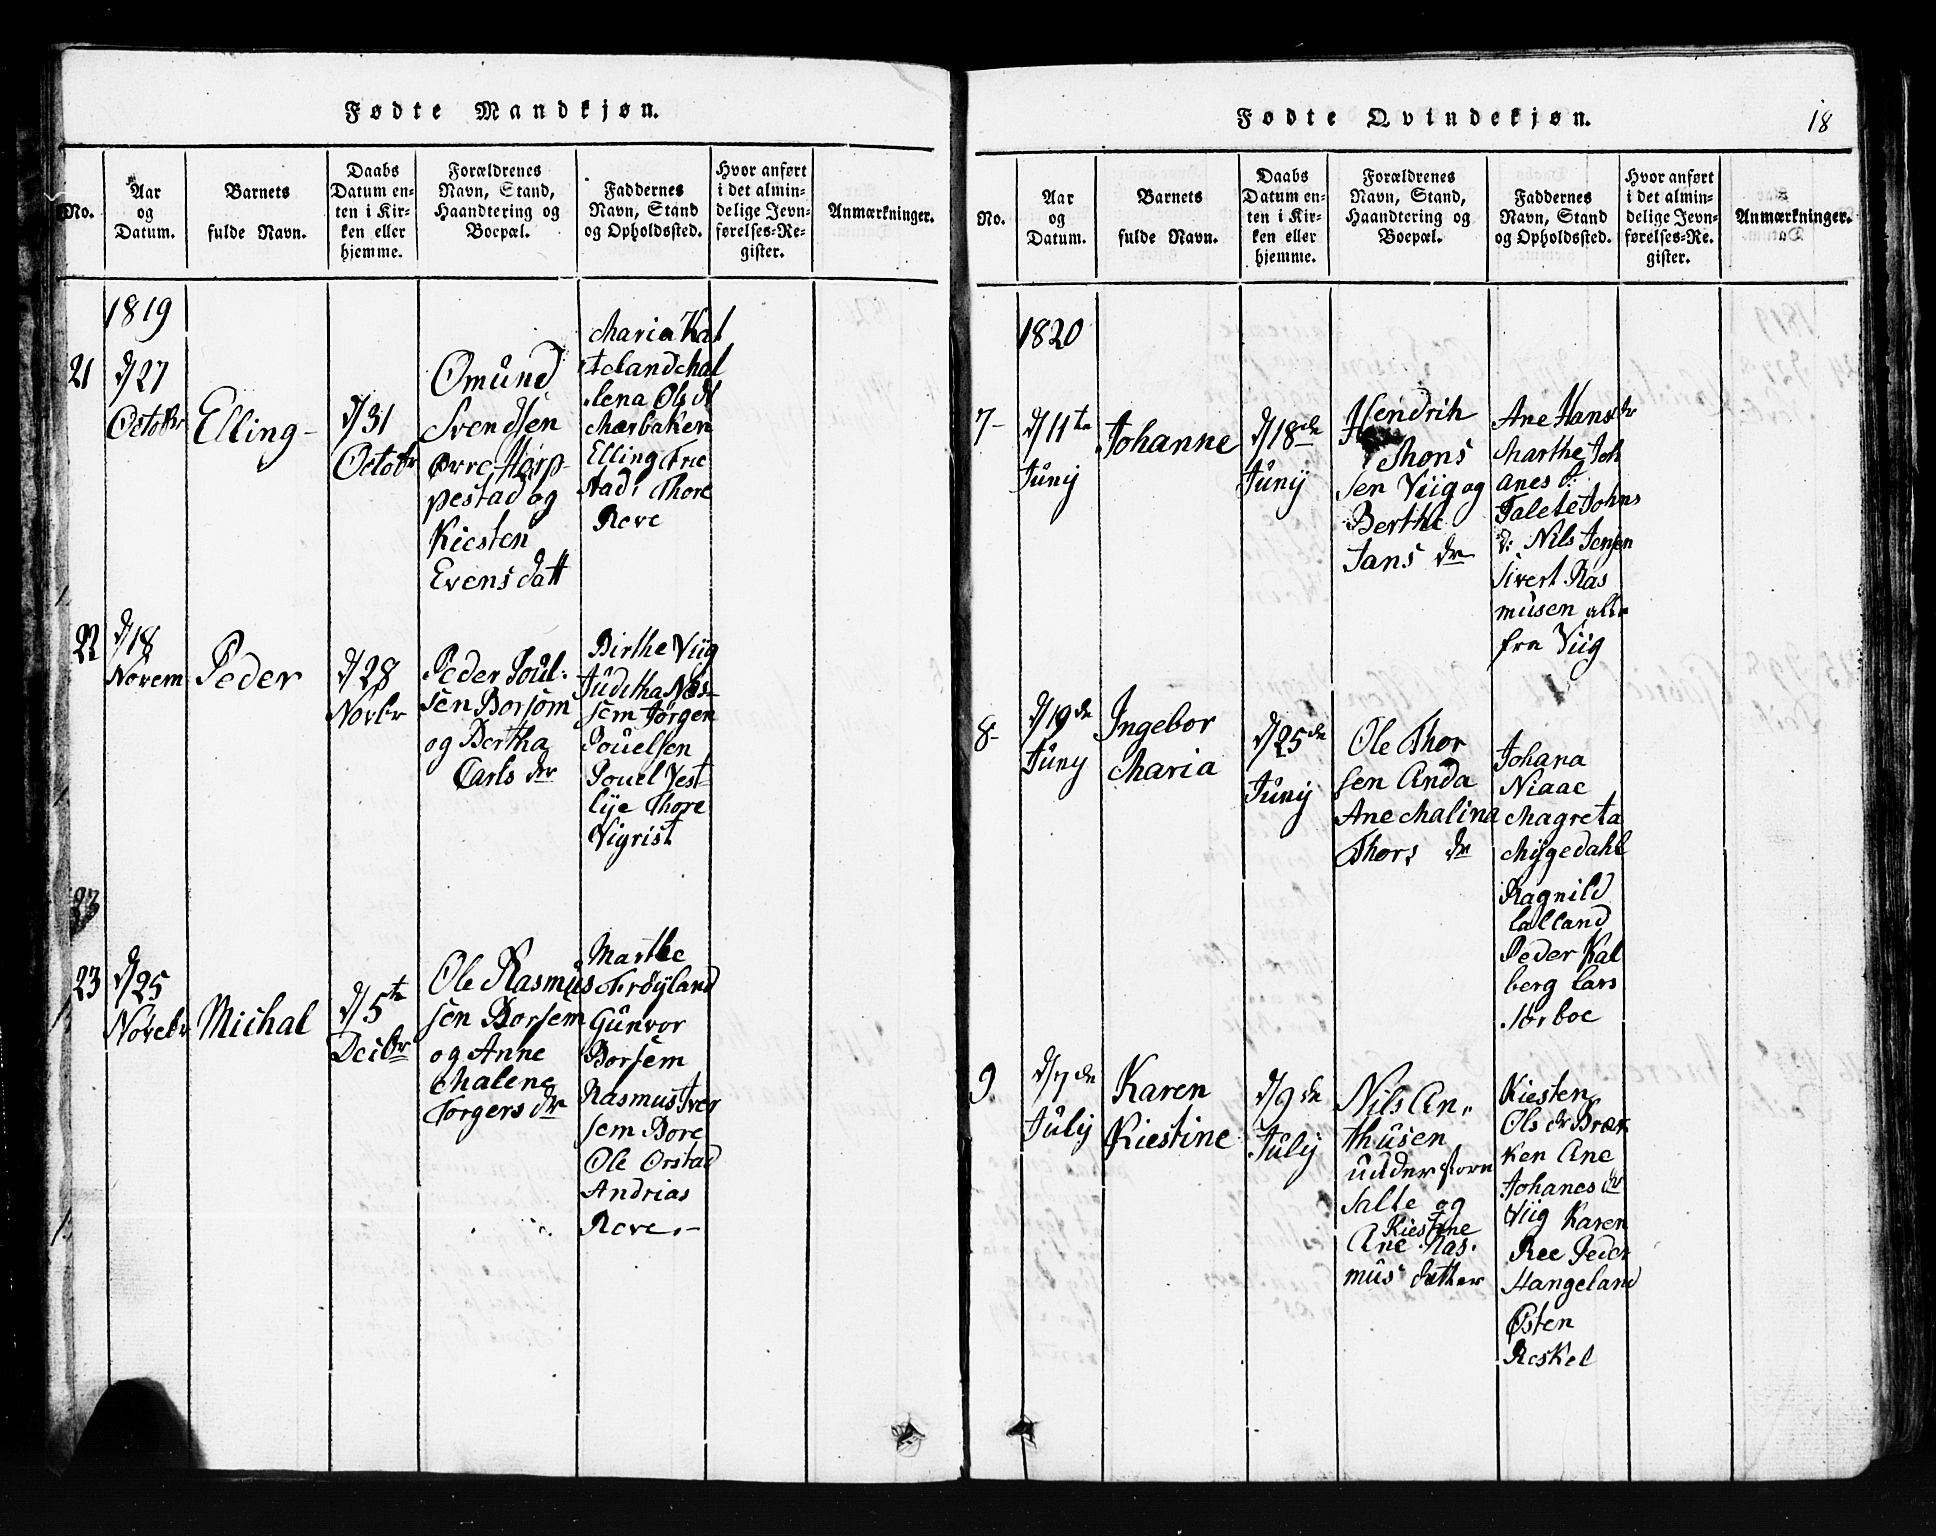 Fødte Mandkjøn.
No.
Aar
og
Datum.
Barnets
fulde Navn.
Daabs
Datum en-
ten i Kir-
ken eller
hjemme.
Forældrenes
Navn, Stand,
Haandtering og
Boepæl.
Faddernes
Navn, Stand
og Opholdssted.
Hvor anført
i det almin-
delige Jevn-
førelses-Re-
gister.
Anmærkninger.
1819
21
d/27
Octobr
Elling
d/31
Octobr
Omund
Svendsen
Øvre Hørp-
pestad og
Kiesten
Evens datt
Maria Kal
Malena Ols dt
Nærbøken
Elling Fric
stad Thore
Reve
22
d/18
Novem
Peder
d/28
Novbr
Peder Poul-
sen Borsom
og Bertha
Carls dr
Birthe Viig
Juditha Næs-
sem Jørgen
Pouelsen
Pouel Vest-
lye Thore
Vigrist
23
23
d/25
Novebr
Michal
d/5te
Decbr
Ole Rasmus
sen Borsem
og Anne
Malene
Torgers dr
Marthe
Frøyland
Gunvor
Borsem
Rasmus Iver
sem Bore
Ole Orstad
Andrias
Reve
Fødte Qvindekjøn.
18
No.
Aar
og
Datum.
Barnets
fulde Navn.
Daabs
Datum en-
ten i Kir-
ken eller
hjemme.
Forældrenes
Navn, Stand,
Haandtering og
Boepæl.
Faddernes
Navn, Stand
og Opholdssted.
Hvor anført
i det almin-
delige Jevn-
førelses-Re-
gister.
Anmærkninger.
1820
7
d/11te
Juny
Johanne
d/18de
Juny
Hendrik
Thons
sen Viig og
Berthe
Jans dr
Ane Hans dr
Marthe Joh
anes d:
Talete Johns
d: Nils Jensen
Sivert Ras
musen alle
fra Viig
8
d/19de
Juny
Ingebor
Maria
d/25de
Juny
Ole Thor
sen Anda
Ane Malina
Thors dr
Johana
Niaae
Magreta
Mygedahl
Ragnild
Lalland
Peder Kal
berg Lars
Norboe
9
d/7de
July
Karen
Kiestine
d/9de
July
Nils An-
thusen
Salte og
Kiestine
Ane Ras-
mus datter
Kiesten
Ols dr Bræk
ken Ane
Johanes dr
Viig Karen
Ree Peder
Hangeland
Østen
Roskel